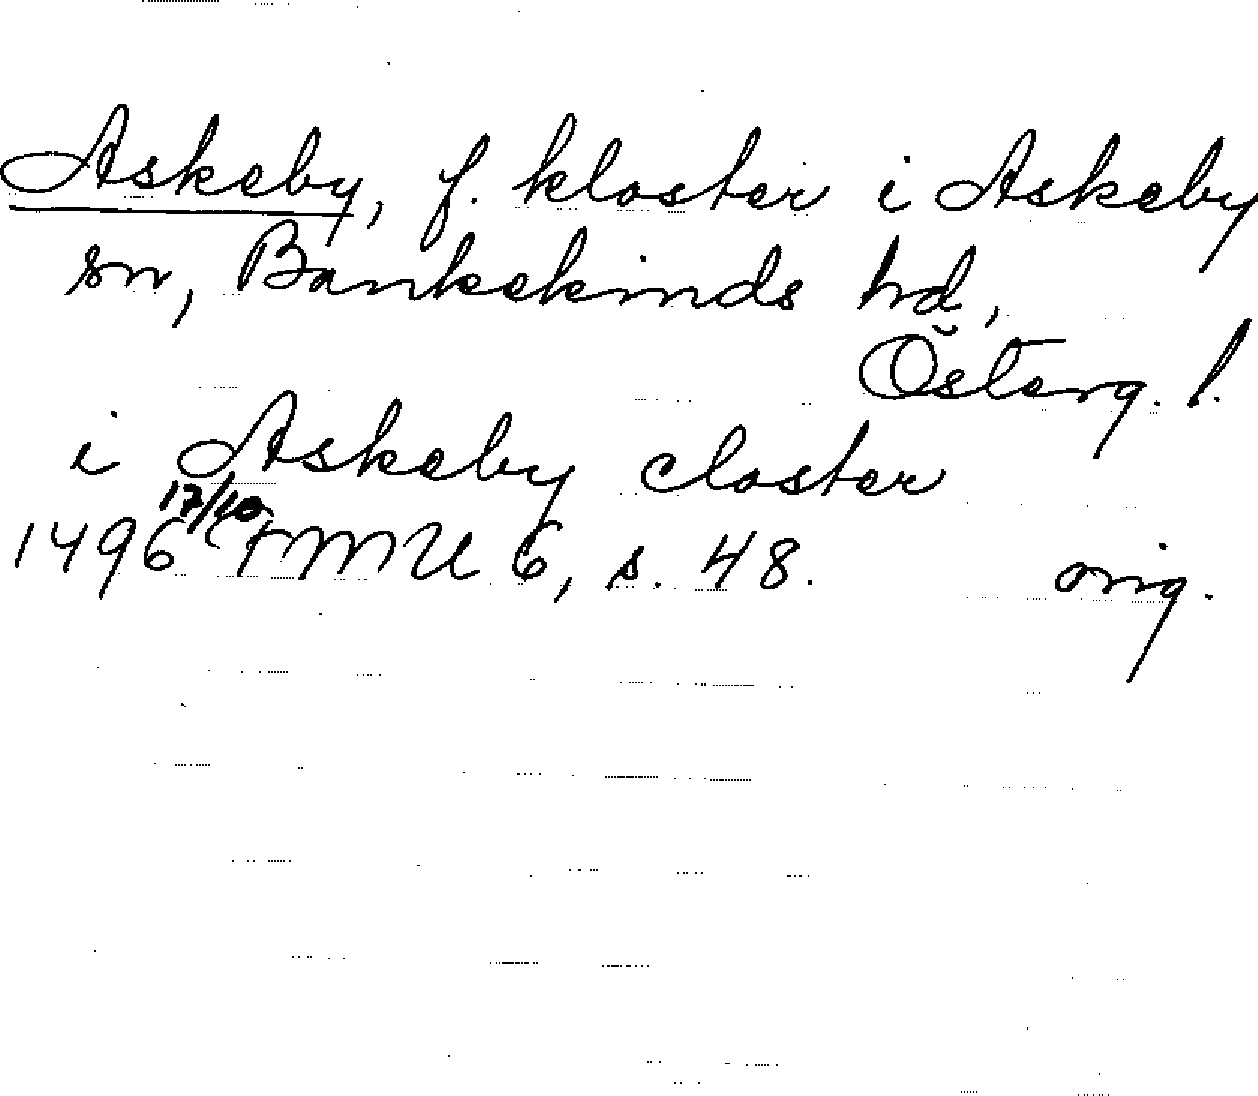 Askeby, f. kloster i Askeby
sn, Bankekinds hd,
Österg. l.
i Askeby closter
17/10
1496 FMU 6, s. 48. orig.